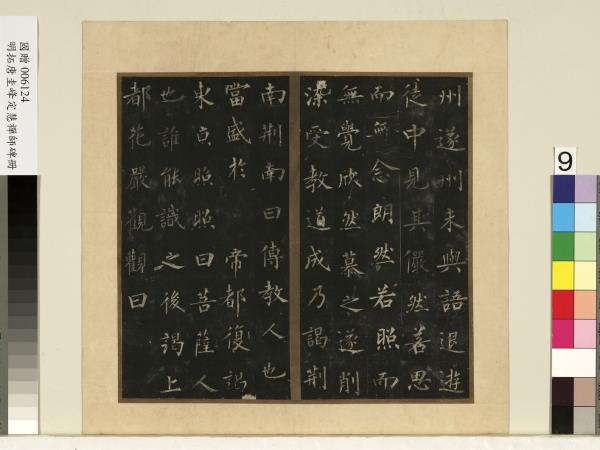 國贈 006124
明拓唐圭峰定慧禪師碑冊
9
州遂州未與語退遊
徒中見其儼然若思
而無念朗然若照而
無覺欣然慕之遂削
染受教道成乃謁荆
南荆南曰傳教人也
當盛於 帝都復謁
東京照照曰菩薩人
也誰能識之後謁上
都花嚴觀觀曰